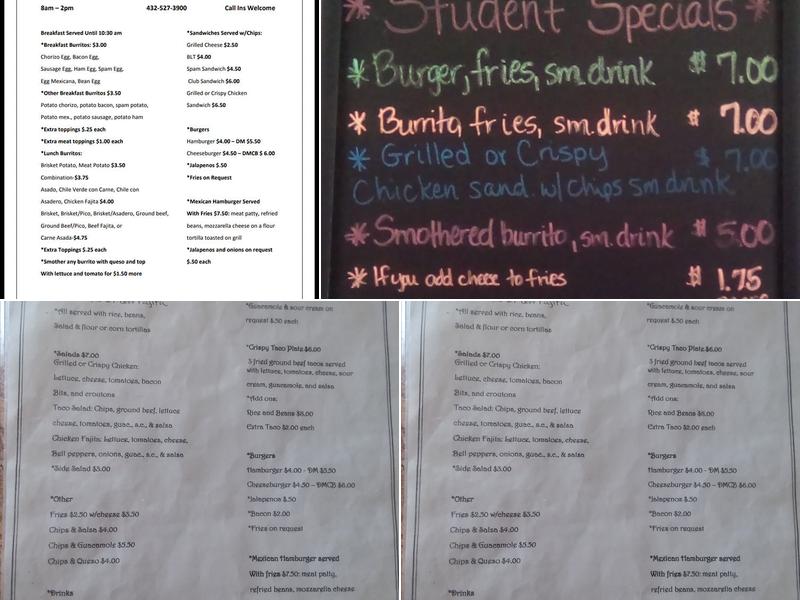 8am – 2pm 432-527-3900 Call Ins Welcome
Breakfast Served Until 10:30 am
*Breakfast Burritos: $3.00
Chorizo Egg, Bacon Egg,
Sausage Egg, Ham Egg, Spam Egg,
Egg Mexicana, Bean Egg
*Other Breakfast Burritos $3.50
Potato chorizo, potato bacon, spam potato,
Potato mex., potato sausage, potato ham
*Extra toppings $.25 each
*Extra meat toppings $1.00 each
*Lunch Burritos:
Brisket Potato, Meat Potato $3.50
Combination-$3.75
Asado, Chile Verde con Carne, Chile con
Asadero, Chicken Fajita $4.00
Brisket, Brisket/Pico, Brisket/Asadero, Ground beef,
Ground Beef/Pico, Beef Fajita, or
Carne Asada-$4.75
*Extra Toppings $.25 each
*Smother any burrito with queso and top
With lettuce and tomato for $1.50 more
*Sandwiches Served w/Chips:
Grilled Cheese $2.50
BLT $4.00
Spam Sandwich $4.50
Club Sandwich $6.00
Grilled or Crispy Chicken
Sandwich $6.50
*Burgers
Hamburger $4.00 – DM $5.50
Cheeseburger $4.50 – DMCB $ 6.00
*Jalapenos $.50
*Fries on Request
*Mexican Hamburger Served
With Fries $7.50: meat patty, refried
beans, mozzarella cheese on a flour
tortilla toasted on grill
*Jalapenos and onions on request
$.50 each
* Student Specials *
* Burger, fries, sm. drink $ 7.00
* Burrito, fries, sm. drink $ 7.00
* Grilled or Crispy $ 7.00
Chicken sand. w/ chips sm drink
* Smothered burrito, sm. drink $ 5.00
* If you add cheese to fries $ 1.75
*All served with rice, beans,
Salad & flour or corn tortillas
*Salads $7.00
Grilled or Crispy Chicken:
Lettuce, cheese, tomatoes, bacon
Bits, and croutons
Taco Salad: Chips, ground beef, lettuce
cheese, tomatoes, guac., s.c., & salsa
Chicken Fajita: Lettuce, tomatoes, cheese,
Bell peppers, onions, guac., s.c., & salsa
*Side Salad $3.00
*Other
Fries $2.50 w/cheese $3.50
Chips & Salsa $4.00
Chips & Guacamole $5.50
Chips & Queso $4.00
*Drinks
*Guacamole & sour cream on
request $.50 each
*Crispy Taco Plate $6.00
3 fried ground beef tacos served
with lettuce, tomatoes, cheese, sour
cream, guacamole, and salsa
*Add ons:
Rice and Beans $3.00
Extra Taco $2.00 each
*Burgers
Hamburger $4.00 - DM $5.50
Cheeseburger $4.50 – DMCB $6.00
*Jalapenos $.50
*Bacon $2.00
*Fries on request
*Mexican Hamburger served
With fries $7.50: meat patty,
refried beans, mozzarella cheese
*All served with rice, beans,
Salad & flour or corn tortillas
*Salads $7.00
Grilled or Crispy Chicken:
Lettuce, cheese, tomatoes, bacon
Bits, and croutons
Taco Salad: Chips, ground beef, lettuce
cheese, tomatoes, guac., s.c., & salsa
Chicken Fajita: Lettuce, tomatoes, cheese,
Bell peppers, onions, guac., s.c., & salsa
*Side Salad $3.00
*Other
Fries $2.50 w/cheese $3.50
Chips & Salsa $4.00
Chips & Guacamole $5.50
Chips & Queso $4.00
*Drinks
*Guacamole & sour cream on
request $.50 each
*Crispy Taco Plate $6.00
3 fried ground beef tacos served
with lettuce, tomatoes, cheese, sour
cream, guacamole, and salsa
*Add ons:
Rice and Beans $3.00
Extra Taco $2.00 each
*Burgers
Hamburger $4.00 - DM $5.50
Cheeseburger $4.50 – DMCB $6.00
*Jalapenos $.50
*Bacon $2.00
*Fries on request
*Mexican Hamburger served
With fries $7.50: meat patty,
refried beans, mozzarella cheese